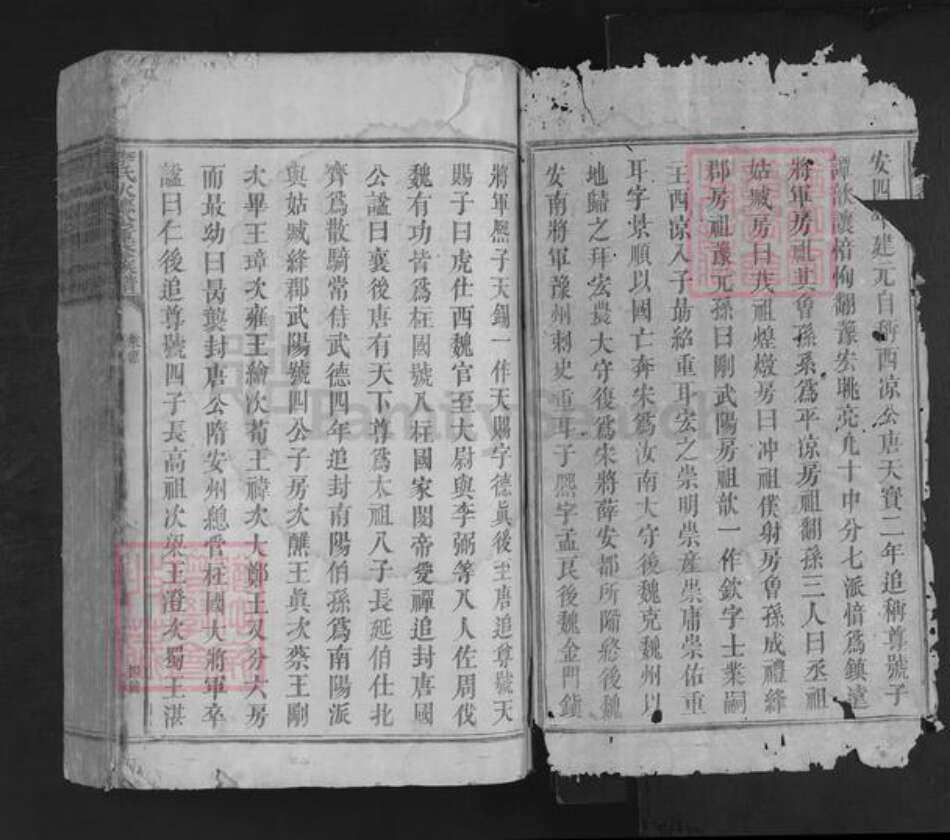 安四年建元自稱西凉公唐天寶二年追稱尊號子
譚歆讓愔恂翻豫宏眺亮凡十中分七派愔爲鎮遠
將軍房祖其曾孫系爲平凉房祖翻孫三人曰丞祖
姑臧房曰茂祖煌燉房曰冲祖僕射房曾孫成禮絳
郡房祖豫元孫曰剛武陽房祖歆一作欽字士業嗣
王西凉入子勗紹重耳宏之崇明崇産崇庸崇佑重
耳字景順以國亡奔宋爲汝南大守後魏克魏州以
地歸之拜宏農大守復爲宋將薛安都所陷後魏
安南將軍豫州刺史重耳子熈字孟良後魏金門鎮
將軍熈子天錫一作天賜字德眞後至唐追尊號天
賜子曰虎仕西魏官至大尉與李弼等八人佐周伐
魏有功皆爲柱國號八柱國家閔帝受禪追封唐國
公謚曰襄後唐有天下尊爲太祖八子長延伯仕北
齊爲散騎常侍武德四年追封南陽伯孫爲南陽派
與姑臧絳郡武陽號四公子房次醮王眞次蔡王剛
次畢王璋次雍王繪次荀王禕次大鄭王又分六房
而最幼曰昺襲封唐公隋安州總管柱國大將軍卒
謚曰仁後追尊號四子長高祖次梁王澄次蜀王湛
FamilySearch